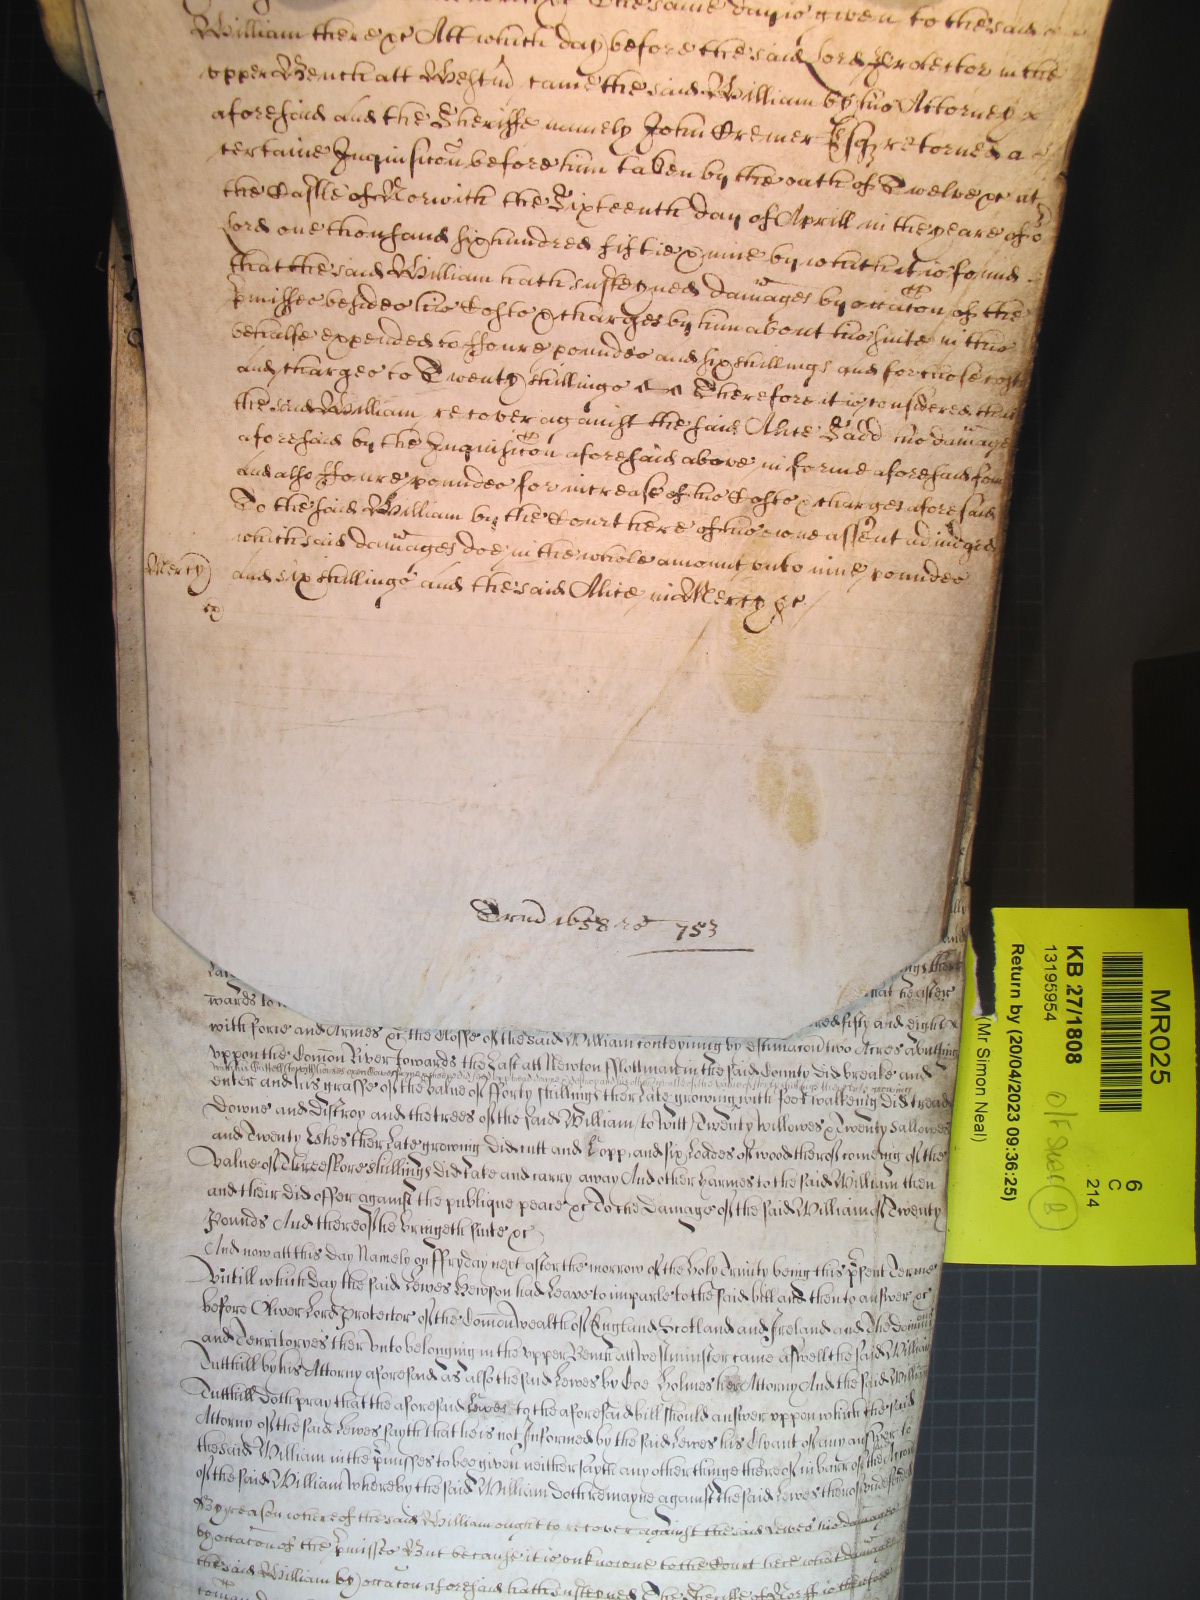 the same day is given to the said
William there &c Att which day before the said Lord Protector in the
upper Bench att Westm̃ came the said William by his Attorney
aforesaid and the Sheriffe namely John Cremer Esq retorned a
certaine Inquisic͠on before him taken by the oath of Twelve &c at
the Castle of Norwich the Sixteenth day of Aprill in the yeare of o
Lord one thousand six hundred fiftie & nine by which it is found
that the said William hath susteyned damages by occac͠on of the
p̃misses besides his Costs & charges by him about his suite in this
behalfe expended to ffoure pounds and six shillings and for those costs
and charges to Twenty shillings Therefore it is considered that
the said William recover against the said Alice Ladd his damages
aforesaid by the Inquisic͠on aforesaid above in forme aforesaid
And also ffoure pounds for increase of his Costs & charges aforesaid
To the said William by the Court here of his owne assent adiudged
which said damages doe in the whole amount unto nine pounds
Mercy
and six shillings and the said Alice in Mercy &c
Trin 1658 ro 753
wards to
that heafter
red fifty and eight
with force and Armes &c the Close of the said William conteyning by estimac͠on two Acres abutting
uppon the Com̃on River towards the East att Newton fflotman in the said County did breake and
enter and his grasse of the value of fforty shillings ther late growing with feet walkeing did tread
downe and distroy and the trees of the said William to witt Twenty willowes & Twenty Sallowes
and Twenty Eshes ther late growing did cutt and Lopp and six Loades of wood therof comeing of the
value of Threescore shillings did take and carry away And other harmes to the said William then
and their did offer against the publique peace &c To the Damage of the said William of Twenty
Pounds And thereof he bringeth suite &c
And now att this day Namely on ffryday next after the morrow of the holy Trinity being this p̃sent Terme
Untill which day the said Lewes Hewson had Leave to imparle to the said bill and then to answer &c
before Oliver Lord Protector of the Com̃onwealth of England Scotland and Ireland and the Dominions
and Territoryes ther unto belonging in the upper Bench att westminster came aswell the said William
Tutthill by his Attorny aforesaid as also the said Lewes by Coe Holmes his Attorny And the said William
Tutthill doth pray that the aforesaid Lewes to the aforesaid bill should answer uppon which the said
Attorny of the said Lewes sayth that he is not Informed by the said Lewes his Clyant of any answer to
the said William in the p̃misses to bee given neither sayth any other thinge thereof in barr of the Acc͠on
of the said William whereby the said William doth remayne against the said Lewes therof undefended
By reason whereof the said William ought to recover against the said Lewes his damages
by occac͠on of the p̃misses But because it is unknowne to the Court here what damages
the said William by occac͠on aforesaid hath susteyned The Sheriffe of Norff is therefore
MR025
6
C
214
KB 27/1808
13195954
Return by (20/04/2023 09:36:25)
(Mr Simon Neal)